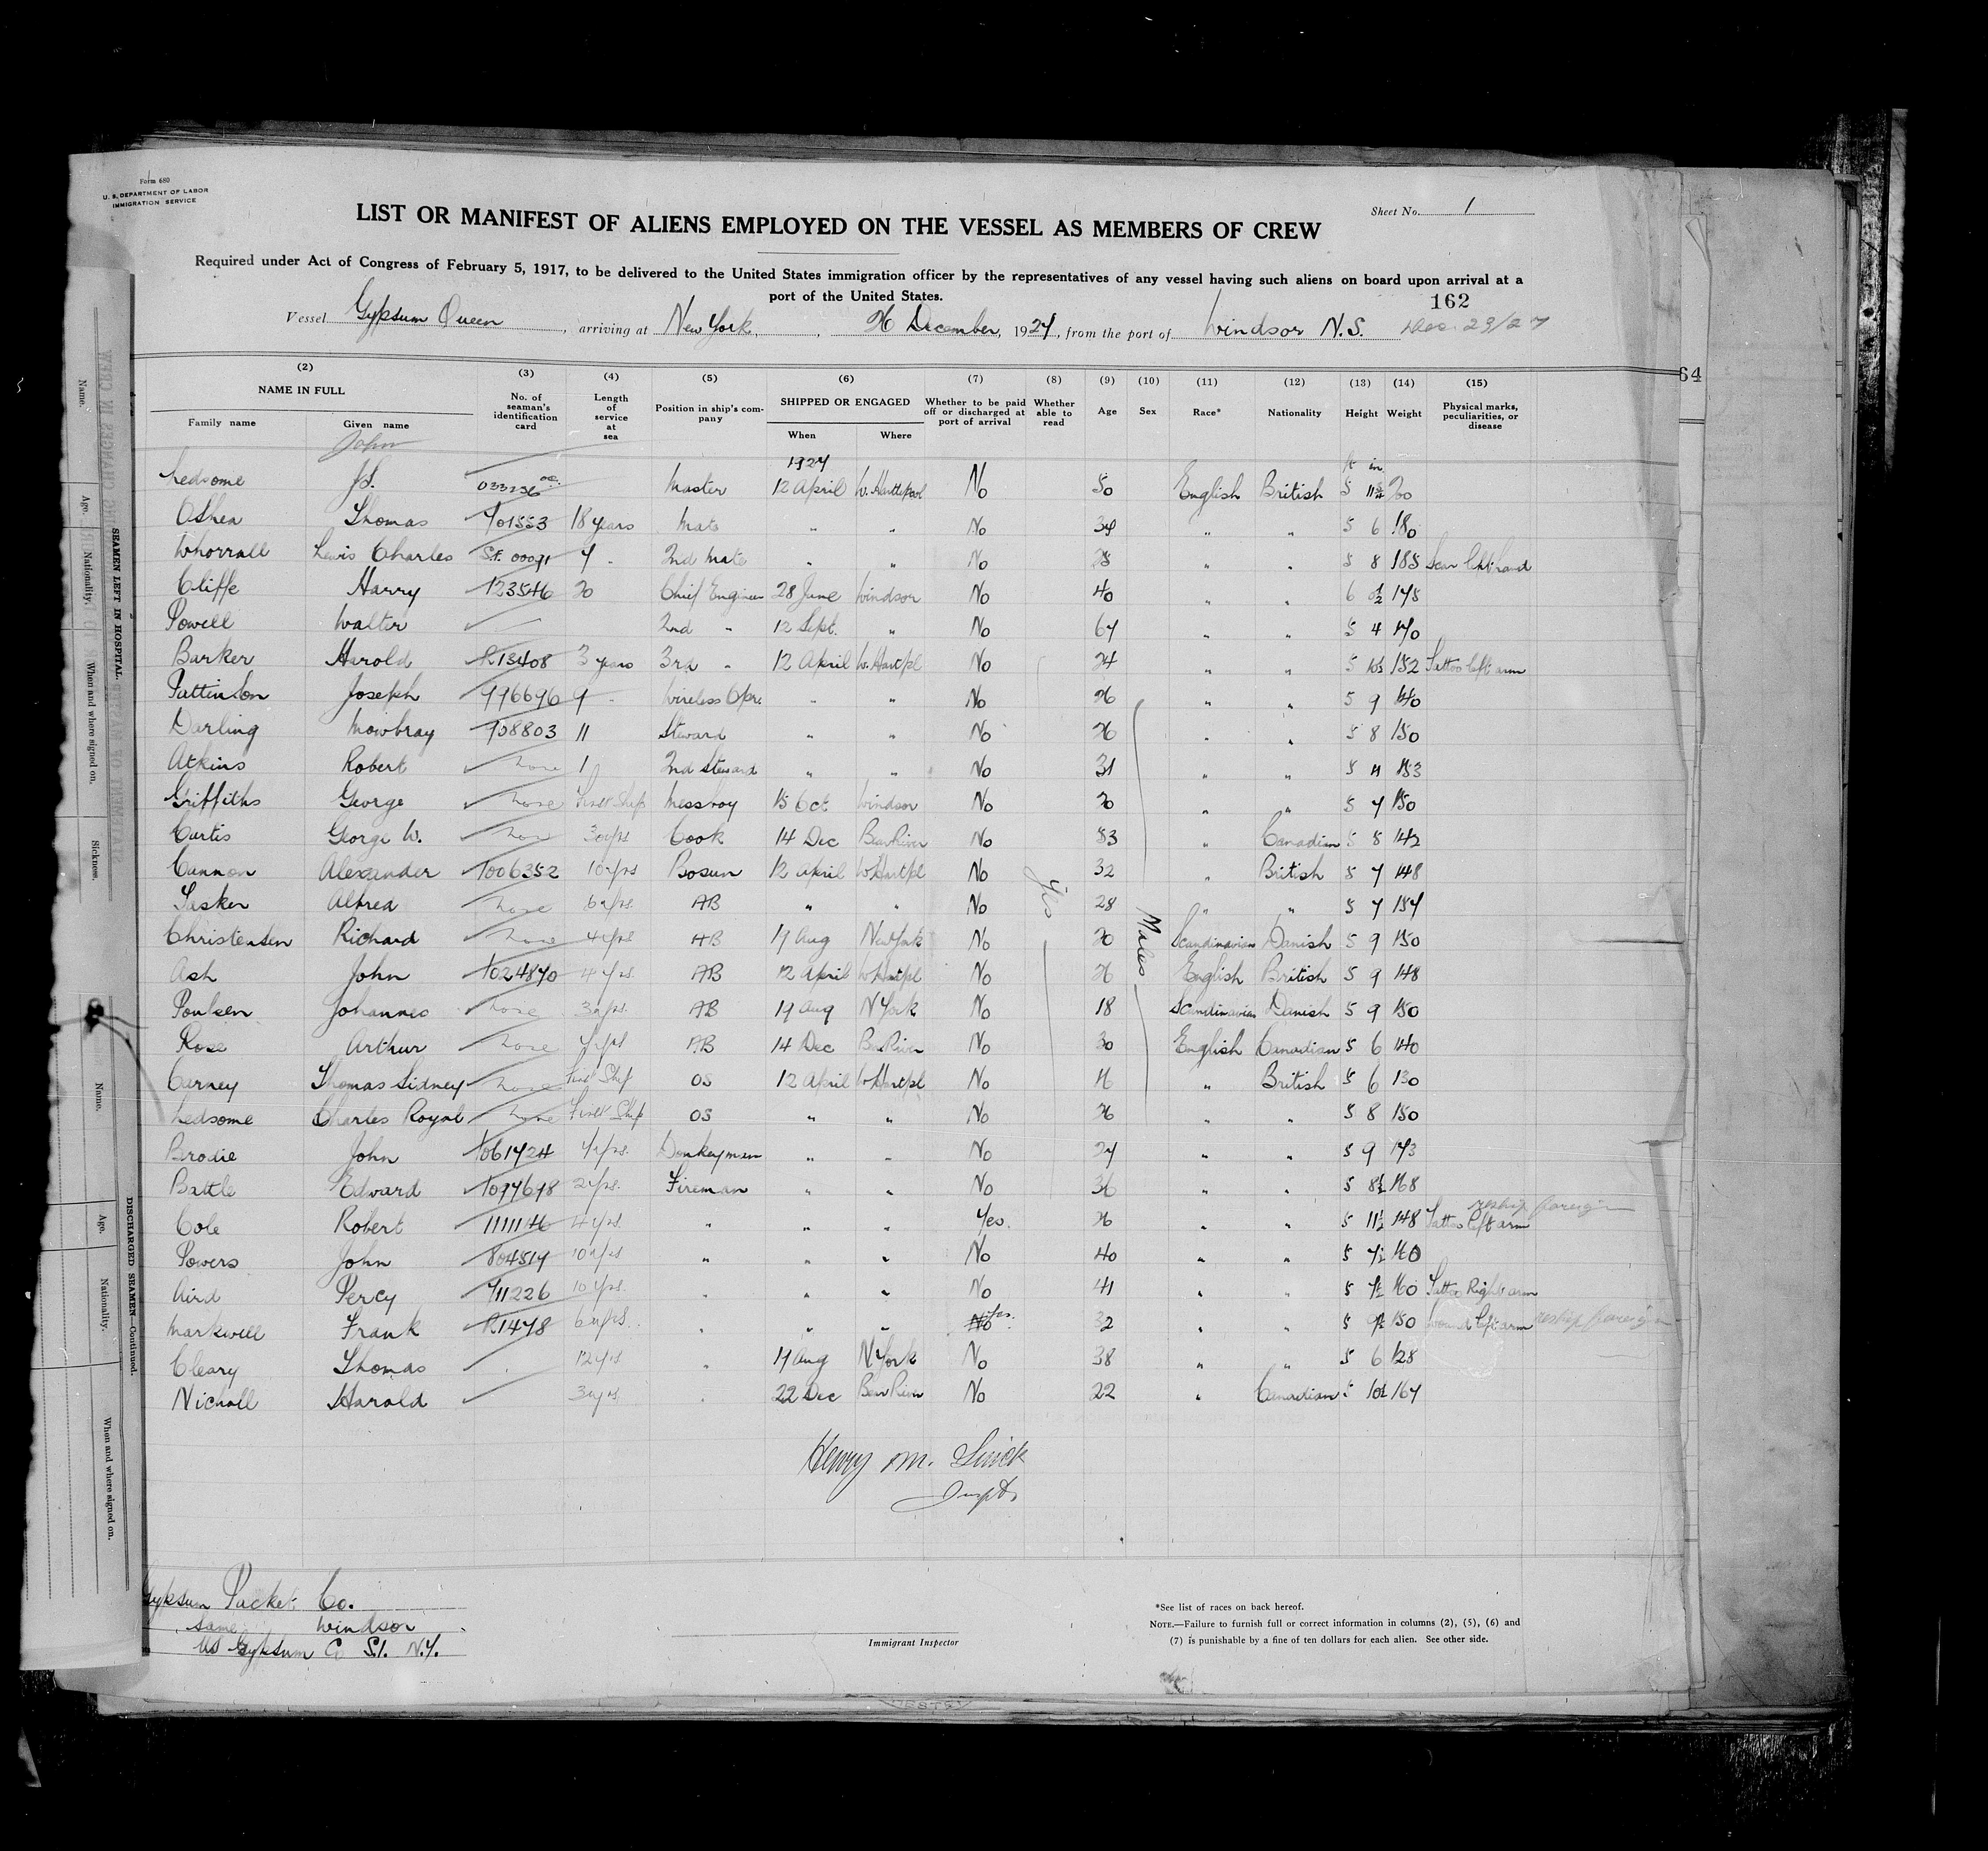 Form 680
U. S. DEPARTMENT OF LABOR
IMMIGRATION SERVICE
Sheet No. 1
LIST OR MANIFEST OF ALIENS EMPLOYED ON THE VESSEL AS MEMBERS OF CREW
Required under Act of Congress of February 5, 1917, to be delivered to the United States immigration officer by the representatives of any vessel having such aliens on board upon arrival at a
port of the United States.
162
Vessel Gypsum Queen, arriving at New York, 26 December, 1927, from the port of Windsor N.S. Dec. 29/27
64
(2) (3) (4) (5) (6) (7) (8) (9) (10) (11) (12) (13) (14) (15)
NAME IN FULL No. of seaman's identification card Length of service at sea Position in ship's company SHIPPED OR ENGAGED Whether to be paid off or discharged at port of arrival Whether able to read Age Sex Race* Nationality Height Weight Physical marks, peculiarities, or disease
Family name Given name When Where
John
1927 ft in
Ledsome J.S. Master 12 April W. Hartlepool No 50 English British 5 200
OShea Thomas 701553 18 years Mate " " No 39 " " 5 6 180
Whorrall Lewis Charles 7 2nd Mate " " No 28 " " 5 8 185 Scar left hand
Cliffe Harry 123546 20 Chief Engineer 28 June Windsor No 40 " " 6 0½ 178
Powell Walter 2nd " 12 Sept. " No 67 " " 5 4 170
Barker Harold R13408 3 years 3rd " 12 April W. Hartpl No 24 " " 5 10½ 152 Tattoo left arm
Pattinson Joseph 996696 9 Wireless Opr. " " No 26 " " 5 9 140
Darling Mowbray 708803 11 Steward " " No 26 " " 5 8 150
Atkins Robert none 1 2nd Steward " " No 31 " " 5 153
Griffiths George none First Ship Messboy 15 Oct Windsor No 20 " " 5 7 150
Curtis George W. none 30 yrs Cook 14 Dec Bear River No 53 " Canadian 5 8 142
Cannon Alexander 1006352 10 yrs Bosun 12 April W Hartpl No 32 " British 5 7 148
Tasker Alfred none 6 yrs. AB " " No 28 " " 5 7 154
Yes
Males
Christensen Richard none 4 yrs AB 19 Aug New York No 20 Scandinavian Danish 5 9 150
Ash John 1024870 4 yrs. AB 12 April W Hartpl No 26 English British 5 9 148
Poulsen Johannes none 3 yrs. AB 19 Aug N York No 18 Scandinavian Danish 5 9 150
Rose Arthur none AB 14 Dec Bear River No 30 English Canadian 5 6 140
Carney Thomas Sidney none First Ship OS 12 April W Hartpl No 16 " British 5 6 130
Ledsome Charles Royal none First Ship OS " " No 26 " " 5 8 150
Brodie John 1061724 Donkeyman " " No 27 " " 5 9 173
Battle Edward 1097698 2 yrs. Fireman " " No 36 " " 5 8½ 168
reship foreign
Cole Robert 1111146 4 yrs. " " " Yes. 26 " " 5 11½ 148 Tattoo left arm
Powers John 804517 10 yrs " " " No 40 " " 5 7½ 160
Aird Percy 711226 10 yrs. " " " No 41 " " 5 7½ 160 Tattoo Right arm
Markwell Frank R1478 6 yrs. " " " No Yes. 32 " " 5 150 Wound left arm reship foreign
Cleary Thomas 12 yrs " 19 Aug N York No 38 " " 5 6 128
Nicholl Harold 3 yrs " 22 Dec Bear River No 22 " Canadian 5 10½ 167
Henry M.
Inspt.
Gypsum Packet Co.
same Windsor
US Gypsum Co S.I. N.Y.
Immigrant Inspector
*See list of races on back hereof.
NOTE.—Failure to furnish full or correct information in columns (2), (5), (6) and
(7) is punishable by a fine of ten dollars for each alien. See other side.
Name.
Age.
Nationality.
When and where signed on.
Sickness.
SEAMEN LEFT IN HOSPITAL.
Name.
Age.
Nationality.
When and where signed on.
DISCHARGED SEAMEN—Continued.